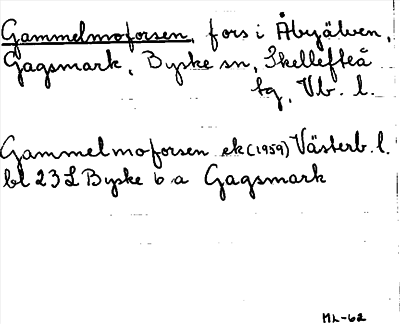 Gammelmoforsen, fors i Åbyälven,
Gagsmark, Byske sn, Skellefteå
tg, Vb. l.
Gammelmoforsen ek (1959) Västerb. l.
bl 23 L Byske 6 a Gagsmark
ML-62